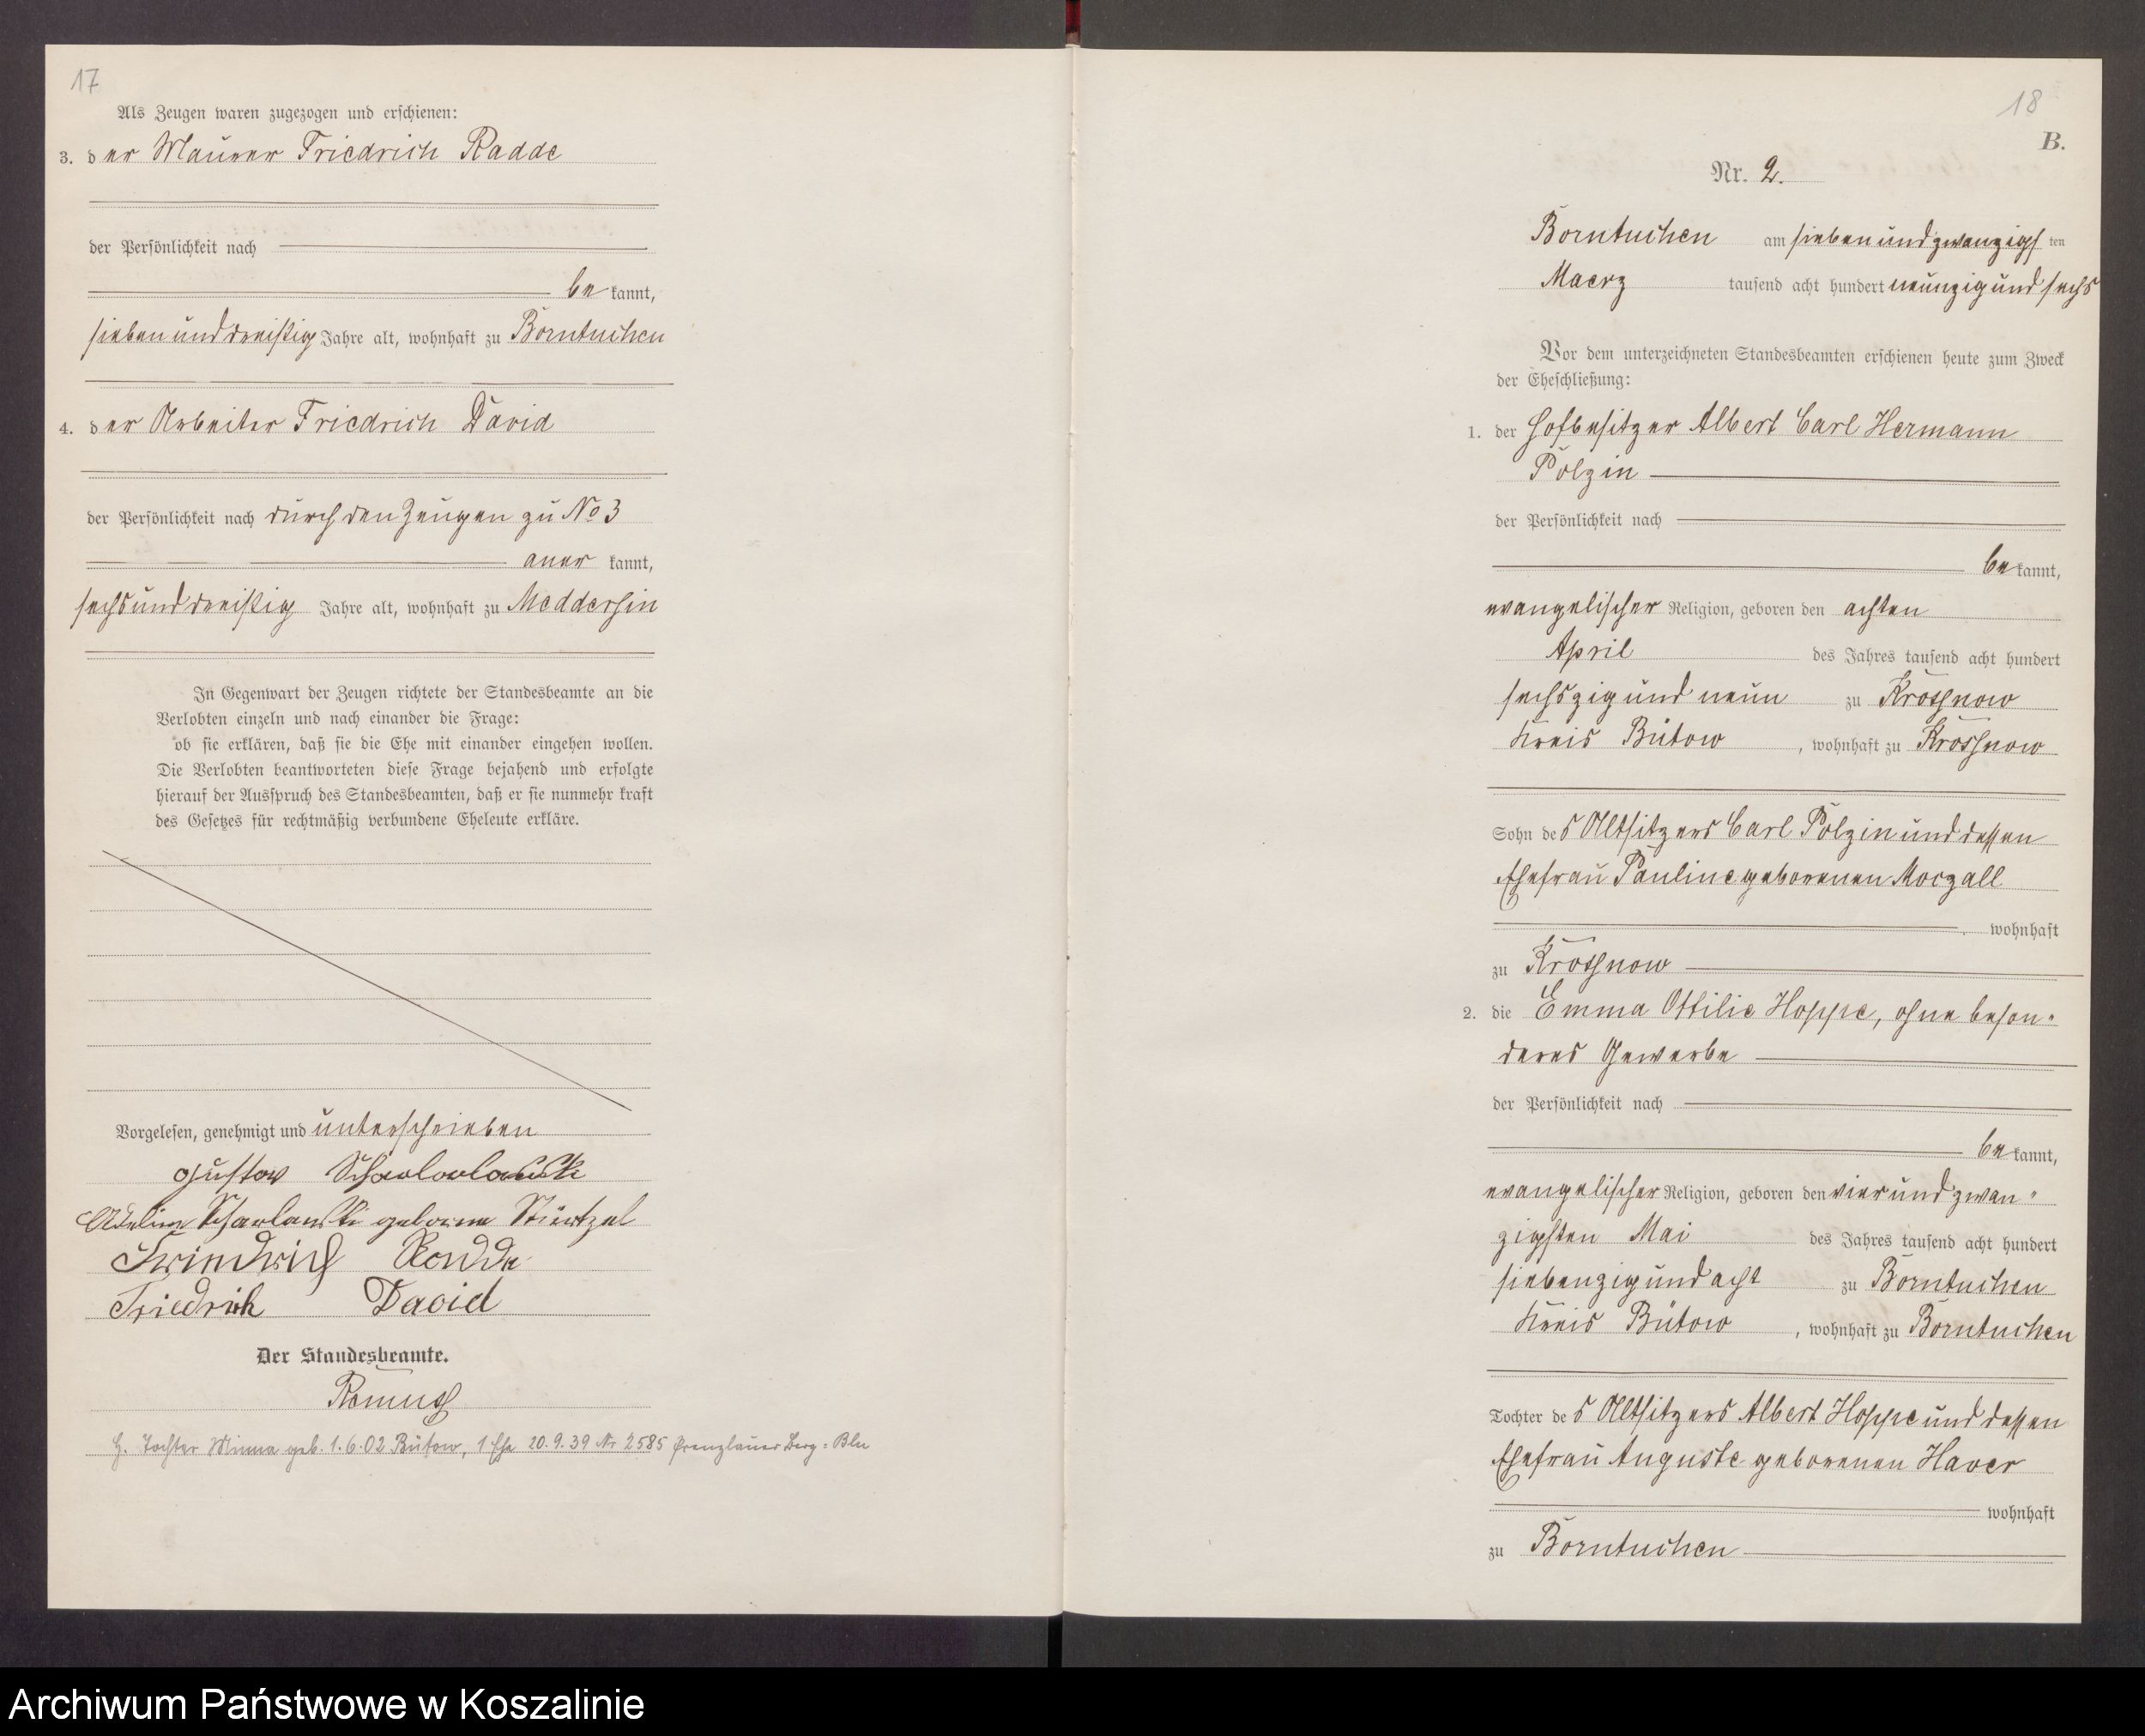 17
Als Zeugen waren zugezogen und erschienen:
3. der Maurer Friedrich Radde
der Persönlichkeit nach
bekannt,
siebenunddreißig Jahre alt, wohnhaft zu Borntuchen
4. der Arbeiter Friedrich David
der Persönlichkeit nach durch den Zeugen zu No 3
anerkannt,
sechsunddreißig Jahre alt, wohnhaft zu Meddersin
In Gegenwart der Zeugen richtete der Standesbeamte an die
Verlobten einzeln und nach einander die Frage:
ob sie erklären, daß sie die Ehe mit einander eingehen wollen.
Die Verlobten beantworteten diese Frage bejahend und erfolgte
hierauf der Ausspruch des Standesbeamten, daß er sie nunmehr kraft
des Gesetzes für rechtmäßig verbundene Eheleute erkläre.
Vorgelesen, genehmigt und unterschrieben
Gustav
geborene Stürtzel
Friedrich Radde
Friedrich David
Der Standesbeamte.
H. Tochter Minna geb. 1.6.02 Bütow, 1 Ehe 20.9.39 Nr 2585 Prenzlauer Berg-Bln
18
B.
Nr. 2.
Borntuchen am siebenundzwanzigsten
Maerz tausend acht hundert neunzig und sechs
Vor dem unterzeichneten Standesbeamten erschienen heute zum Zweck
der Eheschließung:
1. der Hofbesitzer Albert Carl Hermann
Polzin
der Persönlichkeit nach
bekannt,
evangelischer Religion, geboren den achten
April des Jahres tausend acht hundert
sechszig und neun zu Krossnow
Kreis Bütow, wohnhaft zu Krossnow
Sohn des Altsitzers Carl Polzin und dessen
Ehefrau Pauline geborenen Moczall
wohnhaft
zu Krossnow
2. die Emma Ottilie Hoppe, ohne beson-
deres Gewerbe
der Persönlichkeit nach
bekannt,
evangelischer Religion, geboren den vier und zwan-
zigsten Mai des Jahres tausend acht hundert
siebenzig und acht zu Borntuchen
Kreis Bütow, wohnhaft zu Borntuchen
Tochter des Altsitzers Albert Hoppe und dessen
Ehefrau Auguste geborenen Haver
wohnhaft
zu Borntuchen
Archiwum Państwowe w Koszalinie